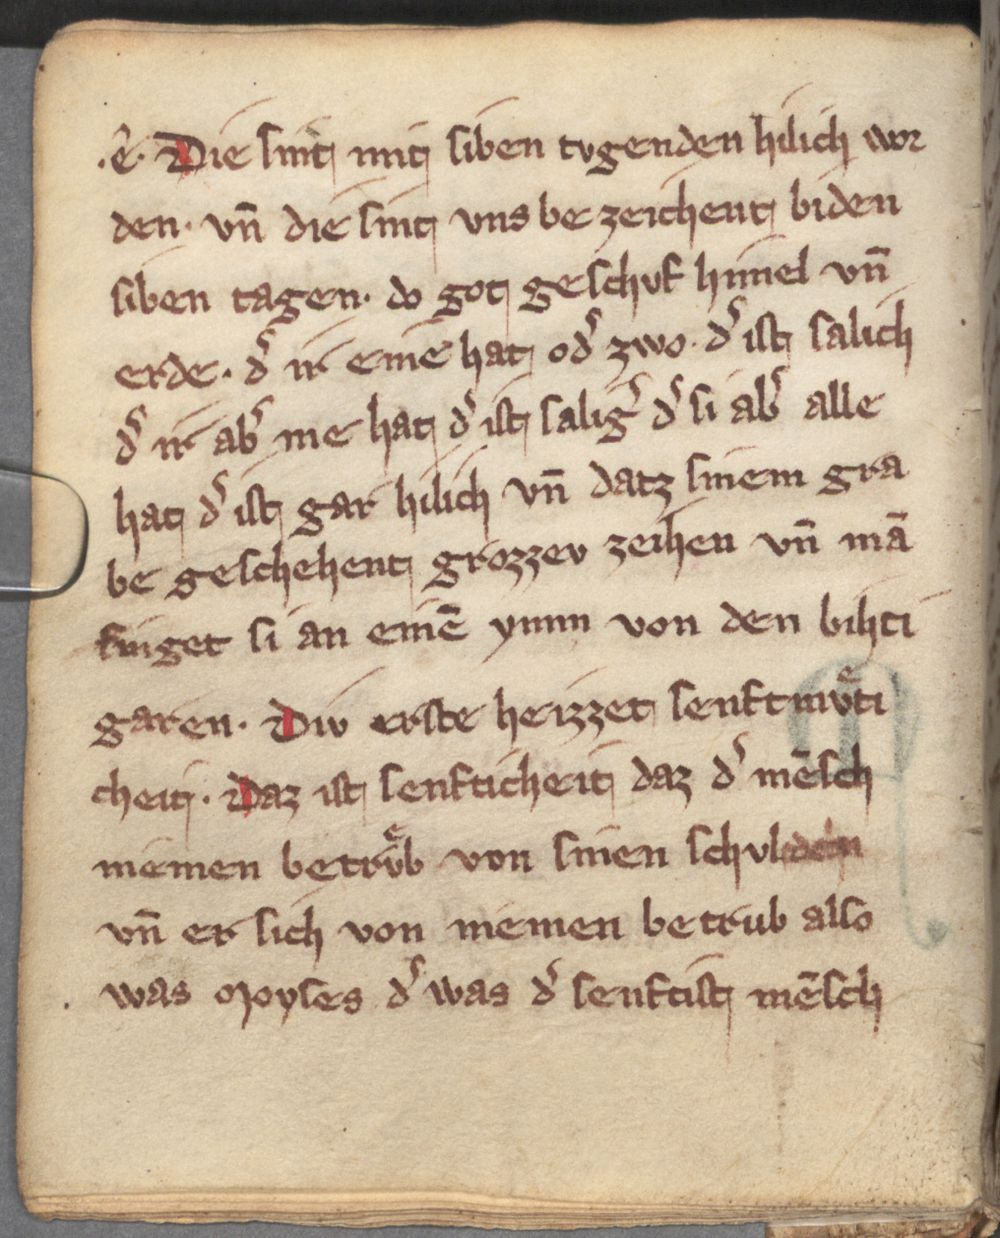 .ê. Die sint mit siben tvgenden hilich wor
den. vn̄ die sint vns be zeichent biden
siben tagen. do got geschvf himel vn̄
erde. dˢ ir eine hat odˢ zwo. dˢ ist salich
dˢ ir abˢ me hat dˢ ist saligˢ dˢ si abˢ alle
hat dˢ ist gar hilich vn̄ datz sinem gra
be geschehent grozzev zeihen vn̄ mā
singet si an einē ymm von den bihti
garen. Div erste heizzet senftmvͤti
cheit. Daz ist senfticheit daz dˢ mēsch
niemen betrvͤb von sinen schvlden
vn̄ er sich von niemen betrub also
was Moyses dˢ was dˢ senftist mēsch